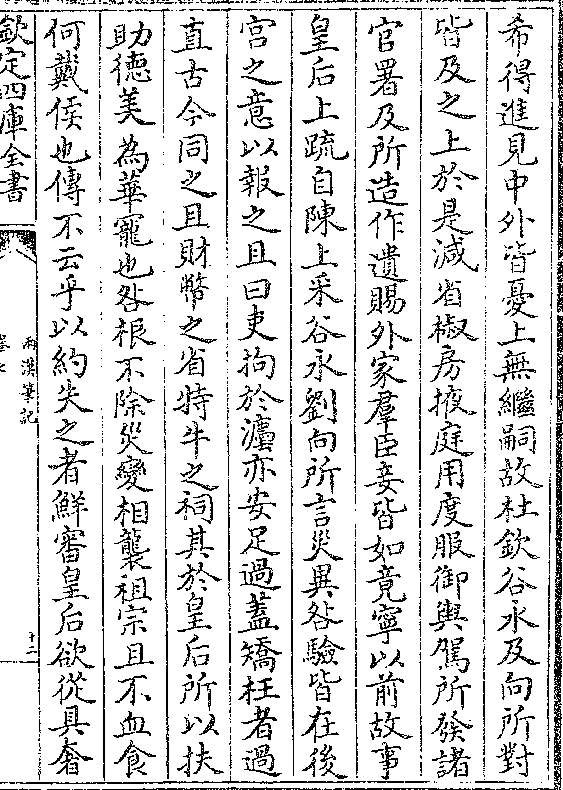 希得進見中外皆憂上無繼嗣故杜欽谷永及向所對
皆及之上於是減省椒房掖庭用度服御輿駕所發諸
官署及所造作遺賜外家羣臣妾皆如竟寧以前故事
皇后上疏自陳上采谷永劉向所言災異咎驗皆在後
宫之意以報之且曰吏拘於灋亦安足過蓋矯枉者過
直古今同之且財幣之省特牛之祠其於皇后所以扶
助德美為華寵也咎根不除災變相襲祖宗且不血食
何戴侯也傳不云乎以約失之者鮮審皇后欲從其奢
欽定四庫全書
兩漢筆記
十二